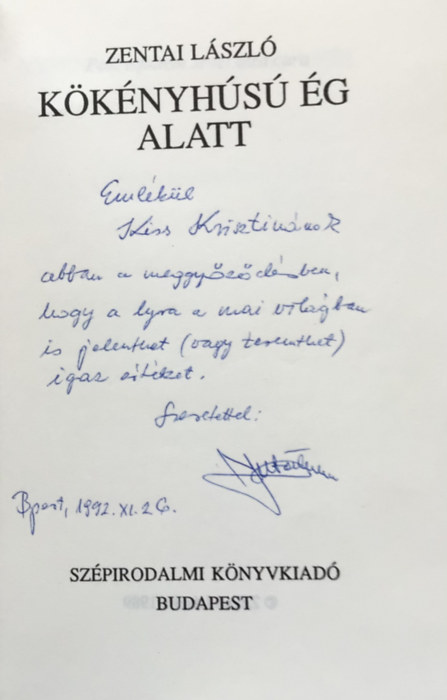 ZENTAI LÁSZLÓ
KÖKÉNYHÚSÚ ÉG
ALATT
Emlékül
Kiss Krisztinának
abban a meggyőződésben,
hogy a lyra a mai világban
is jelenthet (vagy teremthet)
igaz értéket.
Szeretettel:
Bpest, 1992. XI. 26.
SZÉPIRODALMI KÖNYVKIADÓ
BUDAPEST